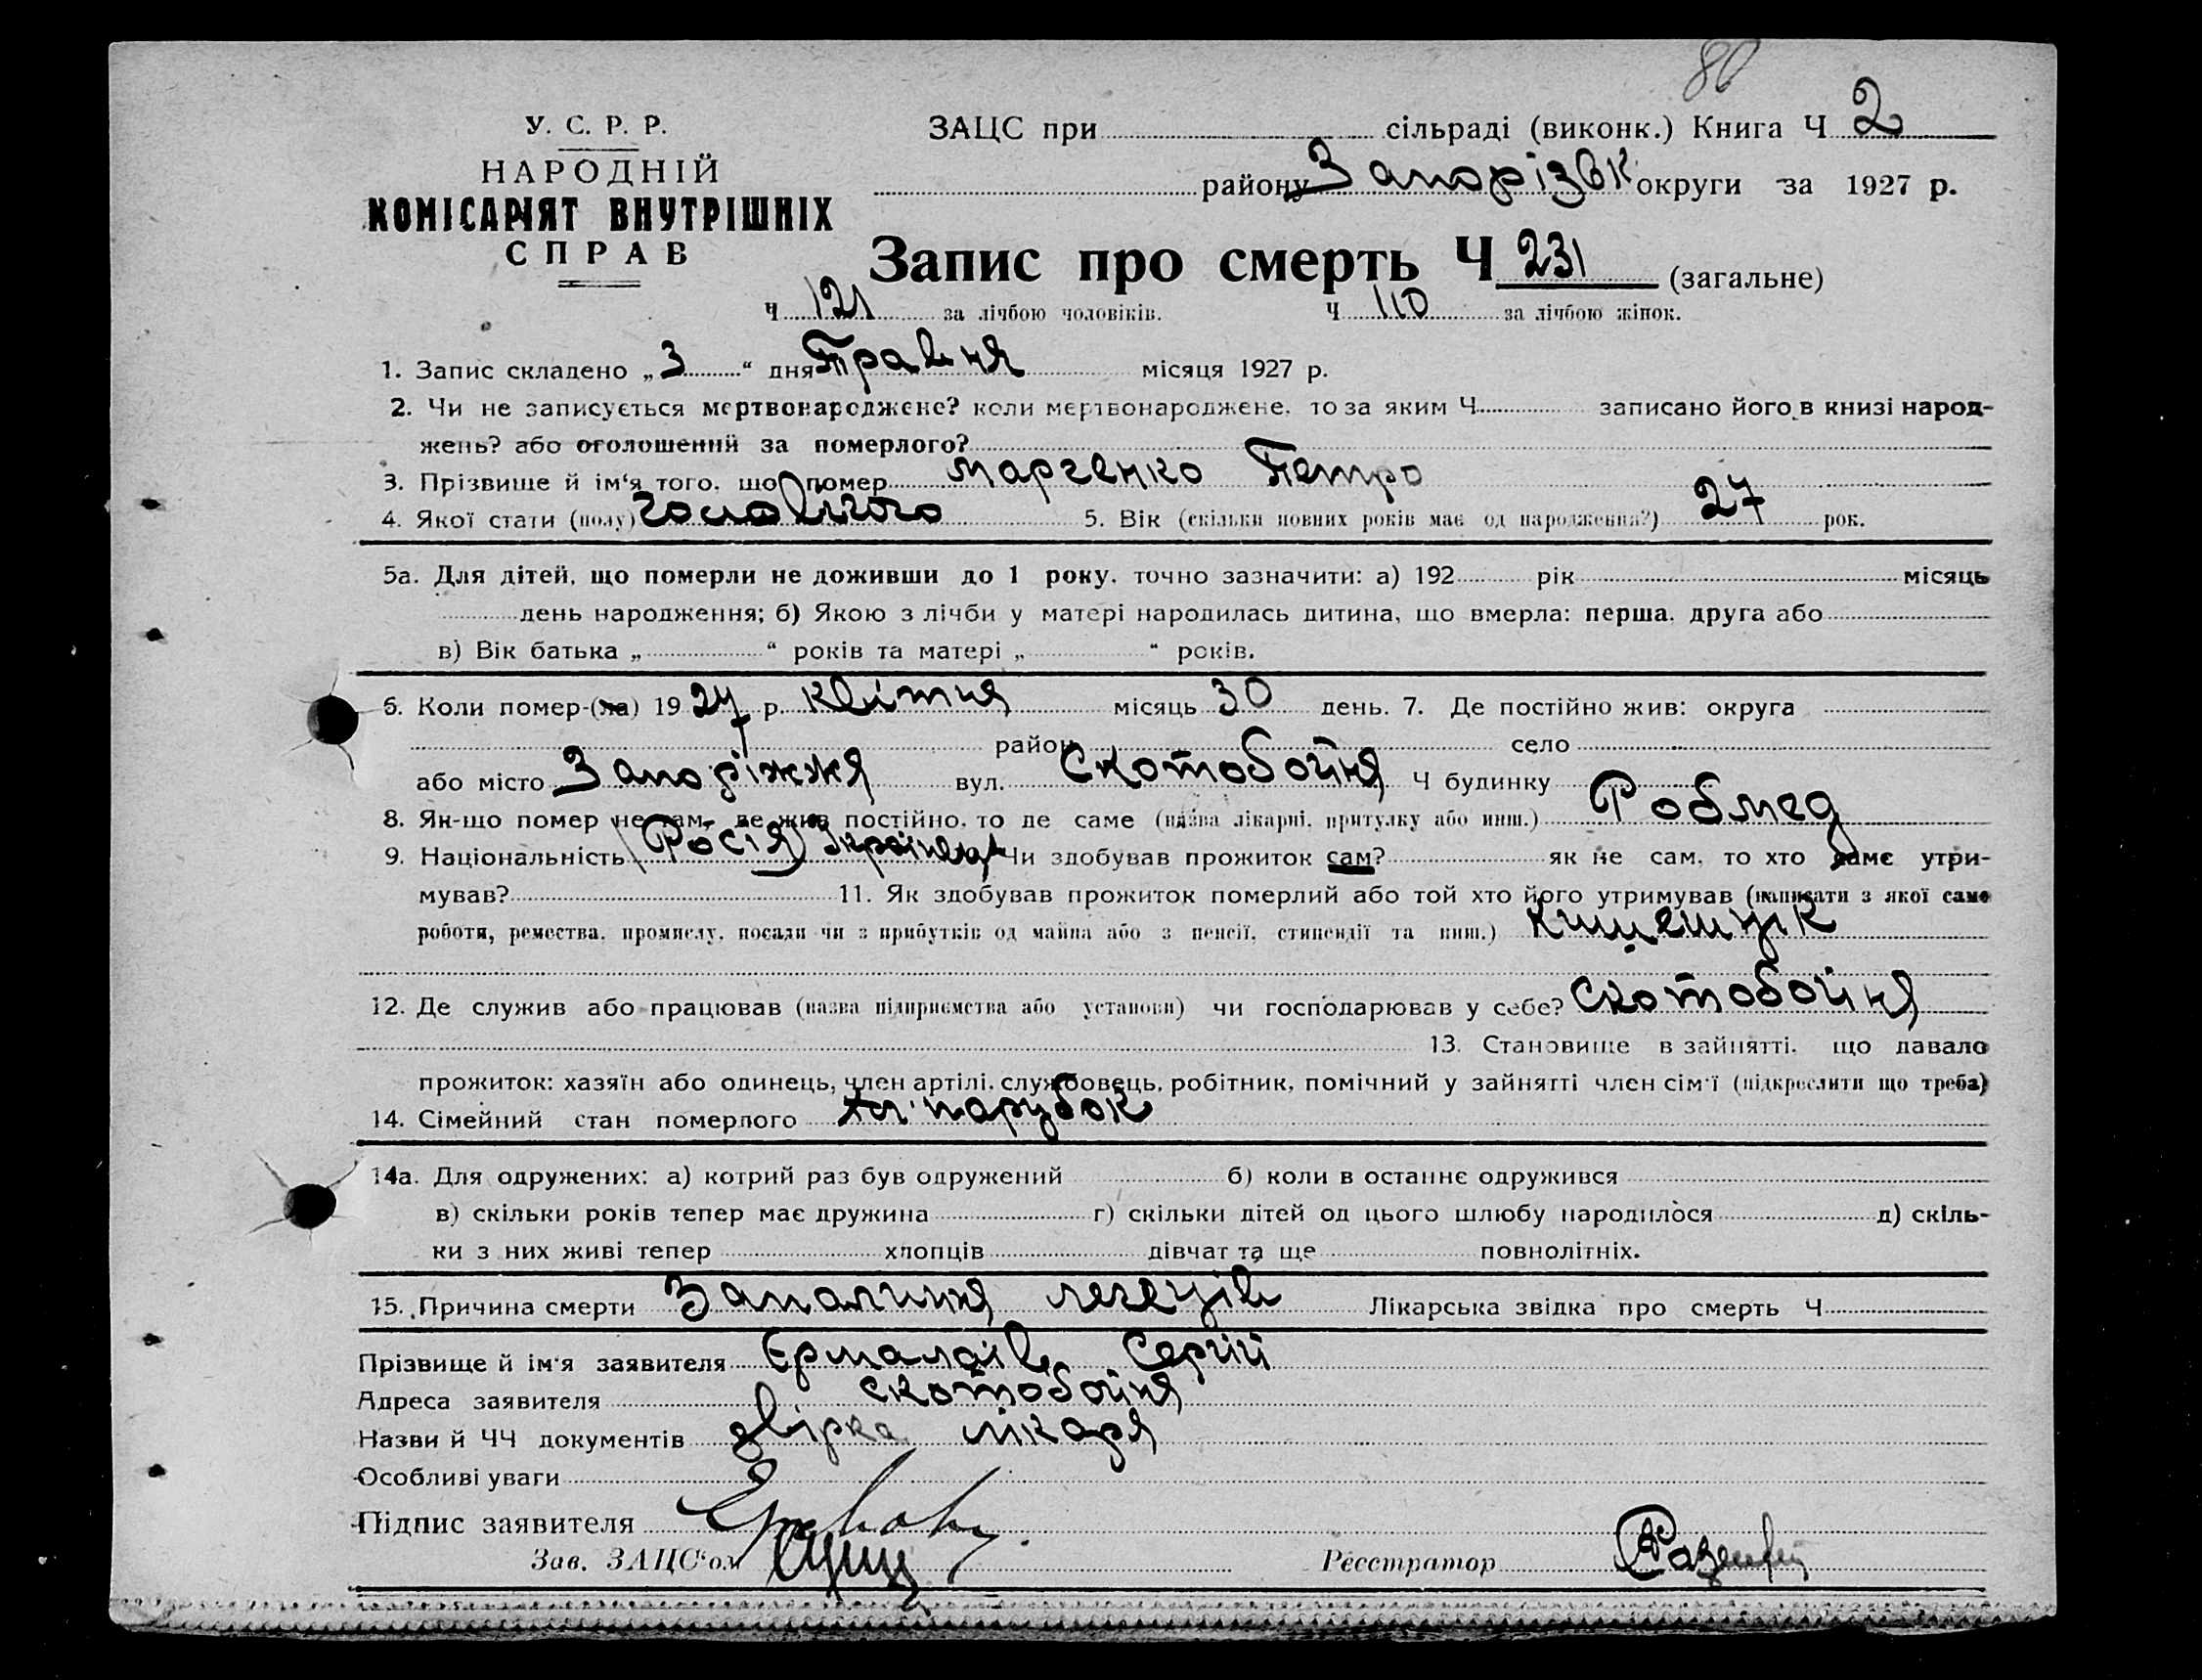 80
У. С. Р. Р.
НАРОДНІЙ
КОМІСАРІЯТ ВНУТРІШНІХ
СПРАВ
ЗАЦС при сільраді (виконк.) Книга Ч 2
району Запорізьк округи за 1927 р.
Запис про смерть Ч 231 (загальне)
Ч 121 за лічбою чоловіків. Ч 110 за лічбою жінок.
1. Запис складено „ 3 “ дня Травня місяця 1927 р.
2. Чи не записується мертвонароджене? коли мертвонароджене, то за яким Ч записано його в книзі народ-
жень? або оголошений за померлого?
3. Прізвище й ім‘я того, що помер Марченко Петро
4. Якої стати (полу) чоловічого 5. Вік (скільки повних років має од народження?) 27 рок.
5а. Для дітей, що померли не доживши до 1 року, точно зазначити: а) 192 рік місяць
день народження; б) Якою з лічби у матері народилась дитина, що вмерла: перша, друга або
в) Вік батька „ “ років та матері „ “ років.
6. Коли помер-(ла) 1927 р. квітня місяць 30 день. 7. Де постійно жив: округа
район село
або місто Запоріжжя вул. Скотобойня Ч будинку
8. Як-що помер не там, де жив постійно, то де саме (назва лікарні, притулку або инш.) Робмед
9. Національність (Росія) Українець Чи здобував прожиток сам? як не сам, то хто саме утри-
мував? 11. Як здобував прожиток померлий або той хто його утримував (написати з якої саме
роботи, ремества, промислу, посади чи з прибутків од майна або з пенсії, стипендії та инш.) кишешник
12. Де служив або працював (назва підприємства або установи) чи господарював у себе? Скотобойня
13. Становище в зайнятті, що давало
прожиток: хазяїн або одинець, член артілі, службовець, робітник, помічний у зайнятті член сім‘ї (підкреслити що треба)
14. Сімейний стан померлого парубок
14а. Для одружених: а) котрий раз був одружений б) коли в останнє одружився
в) скільки років тепер має дружина г) скільки дітей од цього шлюбу народилося д) скіль-
ки з них живі тепер хлопців дівчат та ще повнолітніх.
15. Причина смерти Запалиння легенів Лікарська звідка про смерть Ч
Прізвище й ім‘я заявителя Єрмалаїв Сергій
Адреса заявителя скотобойня
Назви й ЧЧ документів звірка лікаря
Особливі уваги
Підпис заявителя
Зав. ЗАЦС‘ом
Реєстратор